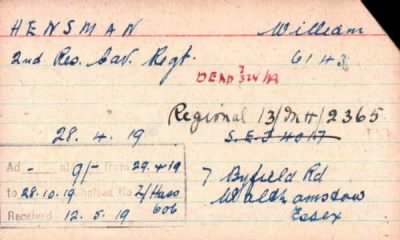 HENSMAN William
2nd Res. Cav. Regt. 6143
DEAD
Regional 13/M H/2365
28.4.19
Ad - 9/- from 29.4.19
to 28.10.19 No 2/Hass
606
Received 12.5.19
7 Byfield Rd
Walthamstow
Essex